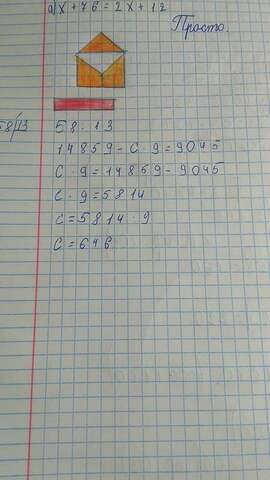 а) х + 76 = 2х + 12
Просто.
58/13
58 · 13
14859 - с · 9 = 9045
с · 9 = 14859 - 9045
с · 9 = 5814
с = 5814 · 9
с = 646